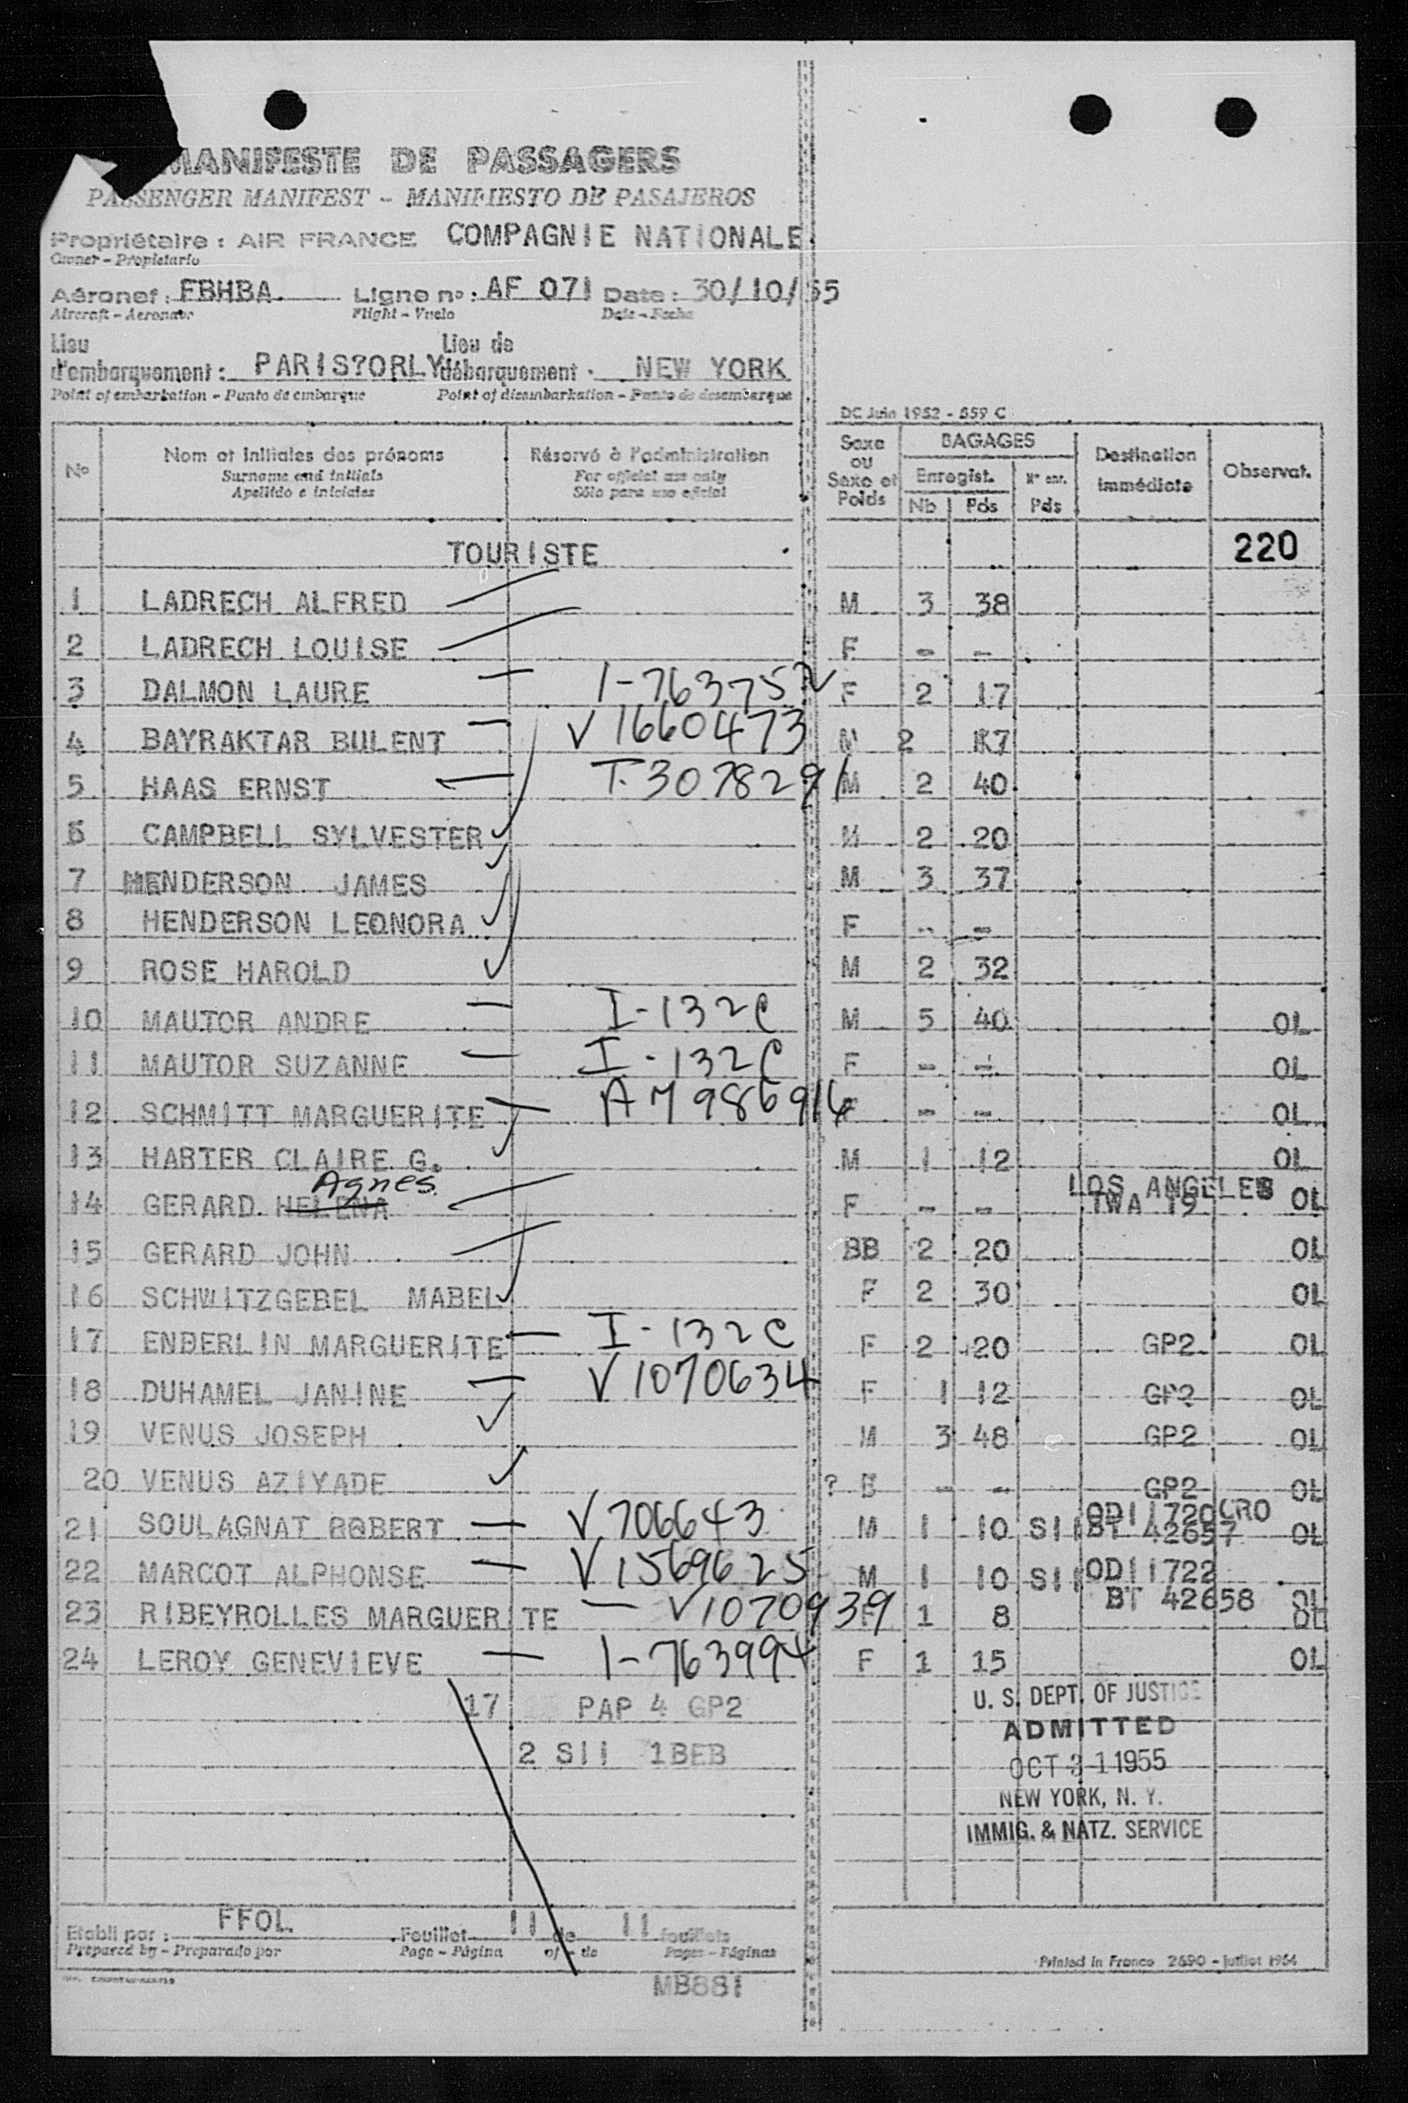 MANIFESTE DE PASSAGERS
PASSENGER MANIFEST - MANIFIESTO DE PASAJEROS
Propriétaire : AIR FRANCE COMPAGNIE NATIONALE
Owner - Propietario
Aéronef : FBHBA. Ligne no : AF 071 Date : 30/10/55
Aircraft - Aeronave Flight - Vuelo Date - Fecha
Lieu d'embarquement : PARIS?ORLY Lieu de débarquement . NEW YORK
Point of embarkation - Punto de embarque Point of disembarkation - Punto de desembarque
DC Juin 1952 - 559 C
No Nom et initiales des prénoms Réservé à l'administration Sexe ou Sexe et Poids BAGAGES Destination immédiate Observat.
Surname and initials For official use only Enregist. N enr.
Apellido e iniciales Sólo para uso oficial Nb Pds Pds
TOURISTE 220
1 LADRECH ALFRED M 3 38
2 LADRECH LOUISE F - -
3 DALMON LAURE — 1-763752 F 2 17
4 BAYRAKTAR BULENT — V 1660473 M 2 K7
5 HAAS ERNST — T-3078291 M 2 40
6 CAMPBELL SYLVESTER ✓ M 2 20
7 HENDERSON JAMES ✓ M 3 37
8 HENDERSON LEONORA ✓ F - -
9 ROSE HAROLD ✓ M 2 32
10 MAUTOR ANDRE — I-132C M 5 40 OL
11 MAUTOR SUZANNE — I-132C F - - OL
12 SCHMITT MARGUERITE — A7986916 F - - OL
13 HARTER CLAIRE G. ✓ M 1 12 OL
Agnes. LOS ANGELES
14 GERARD HELENA F - - TWA 19 OL
15 GERARD JOHN BB 2 20 OL
16 SCHWITZGEBEL MABEL ✓ F 2 30 OL
17 ENDERLIN MARGUERITE — I-132C F 2 20 GP2 OL
18 DUHAMEL JANINE — V 1070634 F 1 12 GP2 OL
19 VENUS JOSEPH ✓ M 3 48 GP2 OL
20 VENUS AZIYADE ✓ ? B - - GP2 OL
21 SOULAGNAT ROBERT — V 706643 M 1 10 SII OD11720CRO BT 42657 OL
22 MARCOT ALPHONSE — V 1569625 M 1 10 SII OD11722 BT 42658 OL
23 RIBEYROLLES MARGUERITE — V1070939 F 1 8 OL
24 LEROY GENEVIEVE — 1-763994 F 1 15 OL
17 PAP 4 GP2
2 SII 1BEB
U. S. DEPT. OF JUSTICE
ADMITTED
OCT 31 1955
NEW YORK, N. Y.
IMMIG. & NATZ. SERVICE
Etabli par : FFOL Feuillet 11 de 11 feuillets
Prepared by - Preparado por Page - Página of - de Pages - Páginas
Printed in France 2690 - juillet 1954
MB881